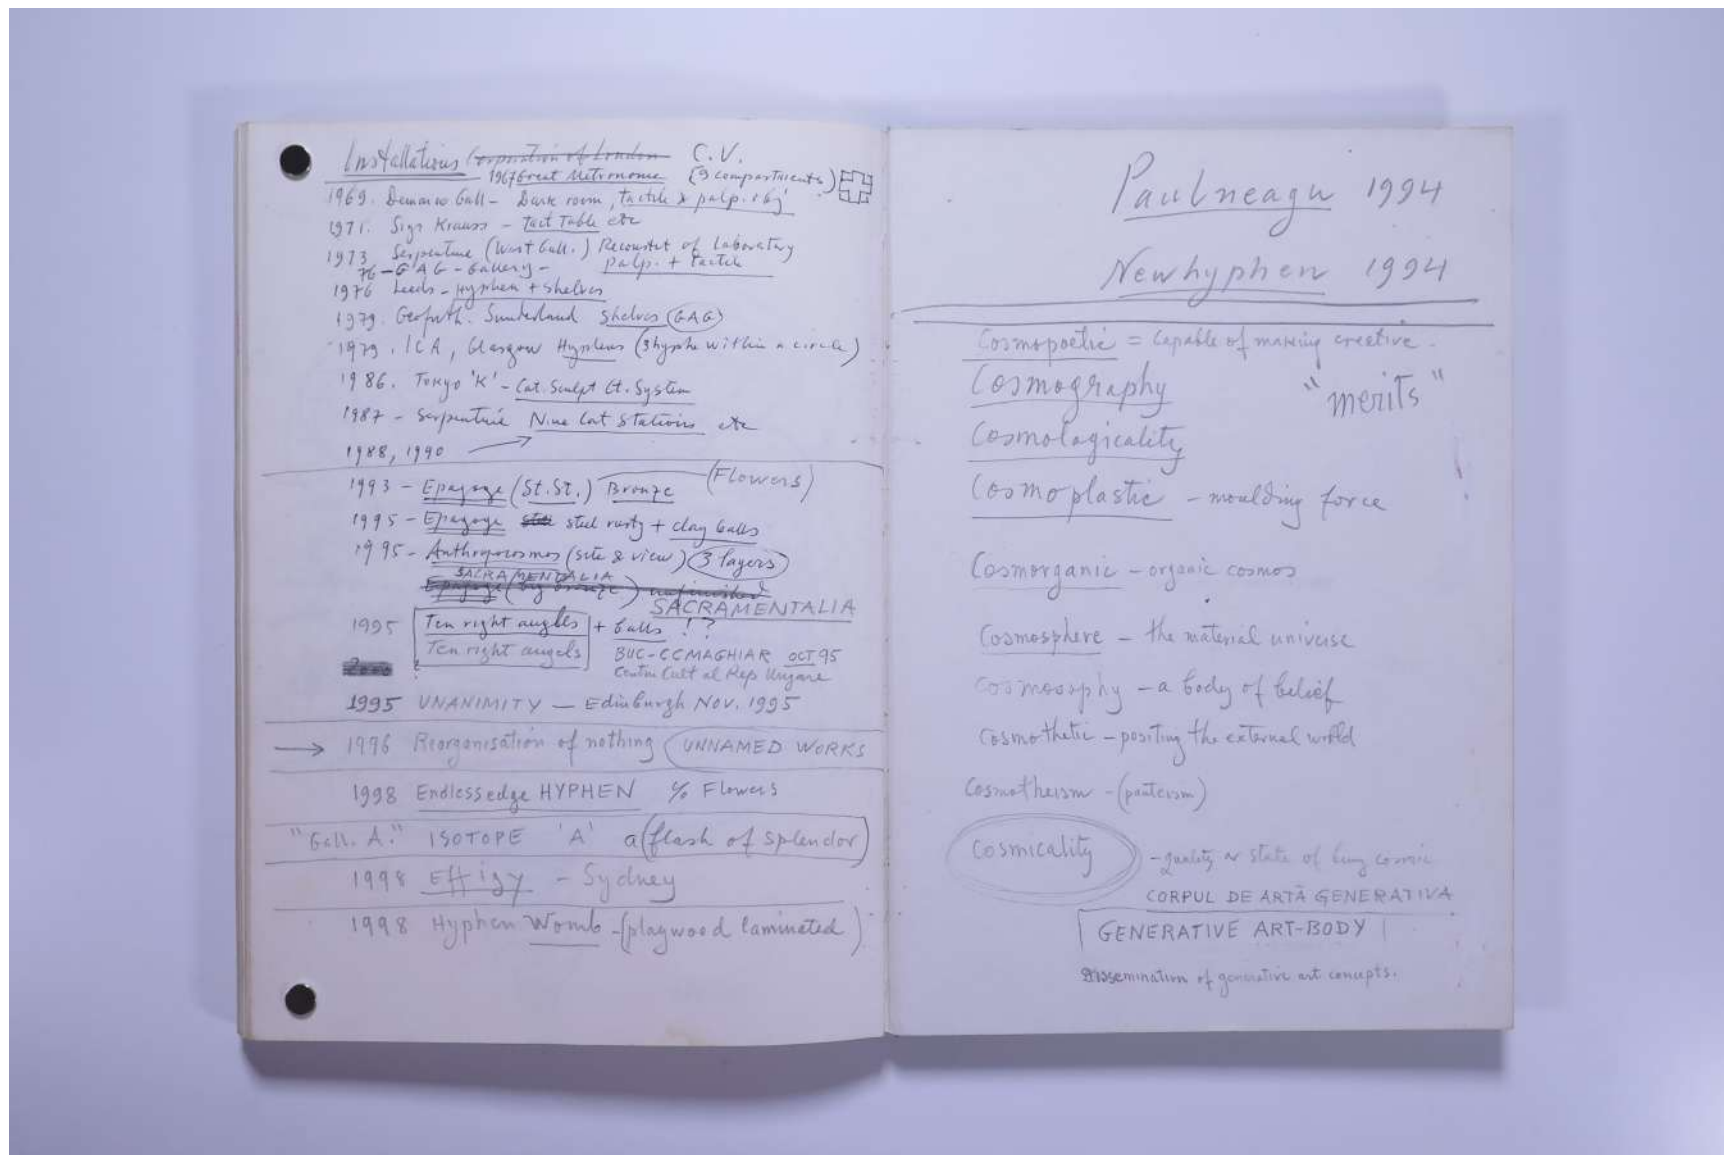 Installations Corporation of London C.V.
1967 Great Metronome (9 compartments)
1969. Demarco Gall - Dark room, tactile & palp. obj
1971. Sigi Krauss - Tact Table etc
1973 Serpentine (West Gall.) Reconstct of laboratory
76 - GAG - Gallery - palp. + tactile
1976 Leeds - Hyphen + Shelves
1979. Sunderland Shelves (GAG)
1979. ICA, Glasgow Hyphens (3 hyphs within a circle)
1986. Tokyo 'K' - Cat. Sculpt Ct. System
1987 - Serpentine Nine Cat Stations etc
1988, 1990
1993 - Epagoge (St. St.) Bronze (Flowers)
1995 - Epagoge steel rusty + clay balls
1995 - Anthropocosmos (site & view) 3 layers
SACRAMENTALIA
Epagoge (big bronze) unfinished
SACRAMENTALIA
1995 Ten right angles + balls !?
Ten right angels BUC-CCMAGHIAR OCT 95
Centru Cult al Rep Ungare
1995 UNANIMITY — Edinburgh NOV. 1995
→ 1996 Reorganisation of nothing (UNNAMED WORKS
1998 Endlessedge HYPHEN c/o Flowers
"Gall. A." ISOTOPE 'A' a (flash of splendor)
1998 Effigy - Sydney
1998 Hyphen Womb - (playwood laminated)
Paulneagu 1994
Newhyphen 1994
Cosmopoetic = Capable of making creative.
Cosmography "merits"
Cosmologicality
Cosmoplastic - moulding force
Cosmorganic - organic cosmos
Cosmosphere - the material universe
Cosmosophy - a body of belief
Cosmothetic - positing the external world
Cosmotheism - (panteism)
Cosmicality - quality or state of being cosmic
CORPUL DE ARTĂ GENERATIVA
GENERATIVE ART-BODY
Dissemination of generative art concepts.